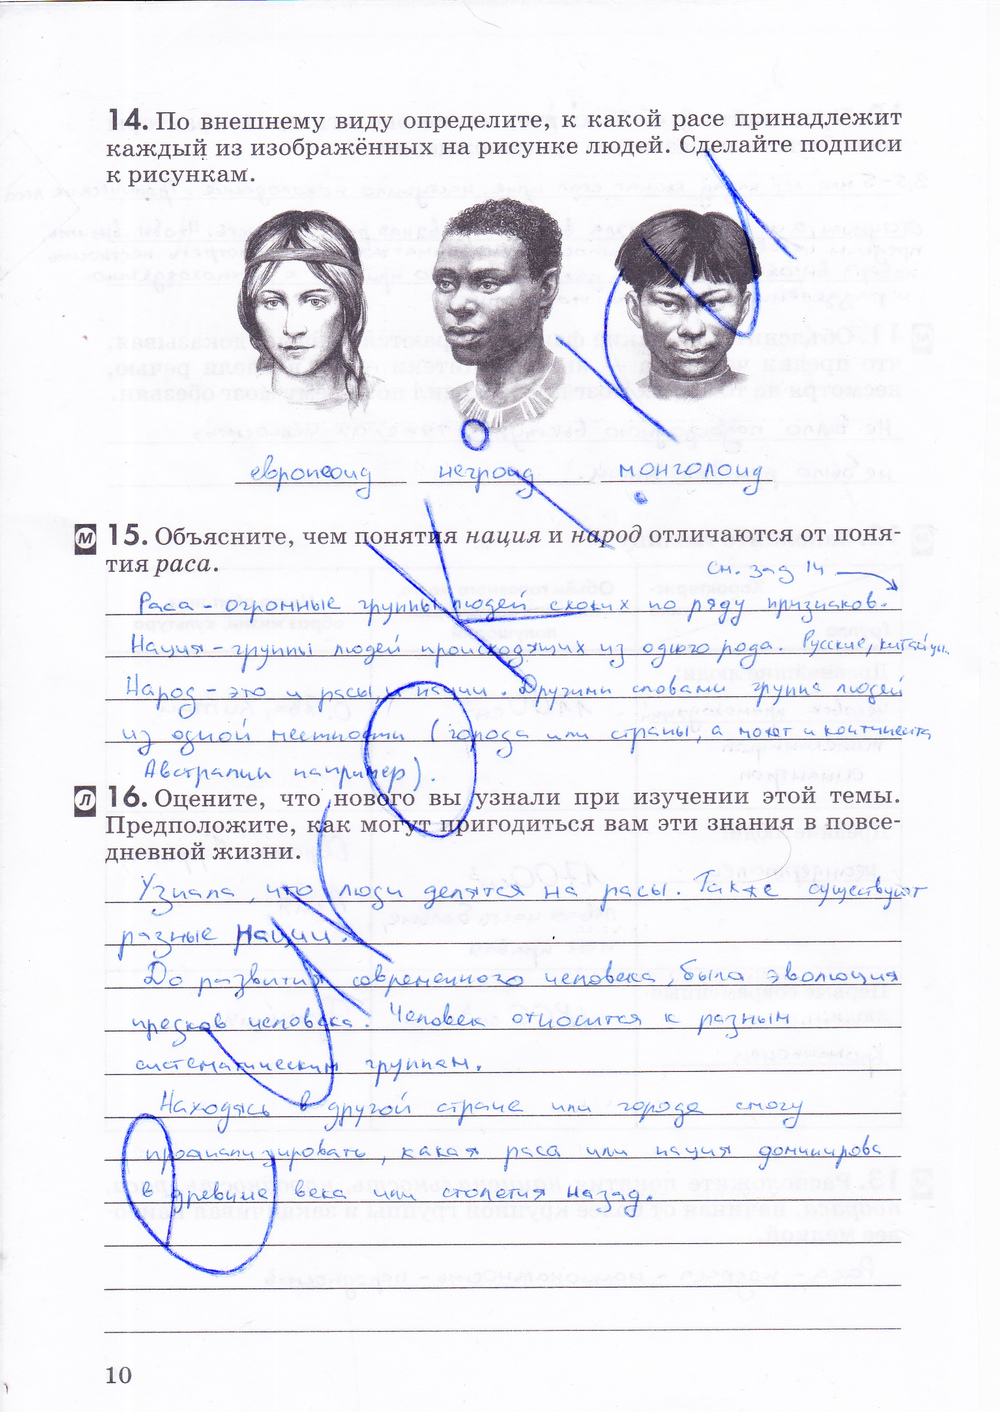 14. По внешнему виду определите, к какой расе принадлежит
каждый из изображённых на рисунке людей. Сделайте подписи
к рисункам.
европеоид негроид монголоид
М 15. Объясните, чем понятия нация и народ отличаются от поня-
тия раса.
См. зад 14
Раса - огромные группы людей схожих по ряду признаков.
Нация - группы людей происходящих из одного рода. Русские, китайцы.
Народ - это и расы, и нации. Другими словами группа людей
из одной местности (города или страны, а может и континента
Австралии например).
Л 16. Оцените, что нового вы узнали при изучении этой темы.
Предположите, как могут пригодиться вам эти знания в повсе-
дневной жизни.
Узнала, что люди делятся на расы. Также существуют
разные нации.
До развития современного человека, была эволюция
предков человека. Человек относится к разным
систематическим группам.
Находясь в другой стране или городе смогу
проанализировать, какая раса или нация доминирова
в древние века или столетия назад.
10